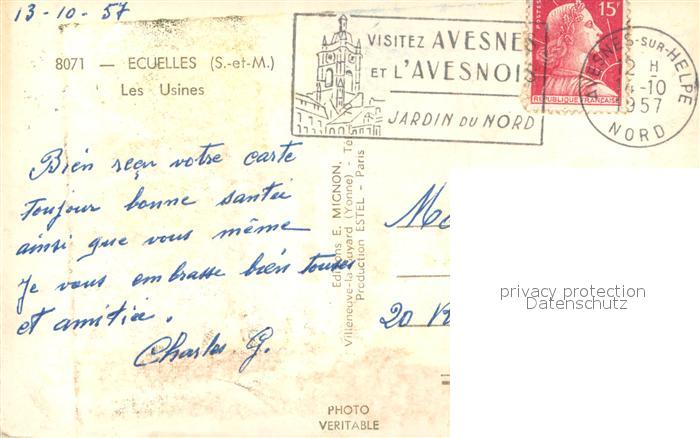 13-10-57
8071 — ECUELLES (S.-et-M.)
Les Usines
VISITEZ AVESNES
ET L'AVESNOIS
JARDIN DU NORD
POSTES 15F
REPUBLIQUE FRANÇAISE
AVESNES-SUR-HELPE
2 H
4-10
1957
NORD
Bien reçu votre carte
Toujour bonne santée
ainsi que vous même
Je vous embrasse bien toutes
et amitiée.
Charles G.
Editions E. MIGNON,
Villeneuve-la- (Yonne) - Té
Production ESTEL - Paris
20
PHOTO
VERITABLE
privacy protection
Datenschutz